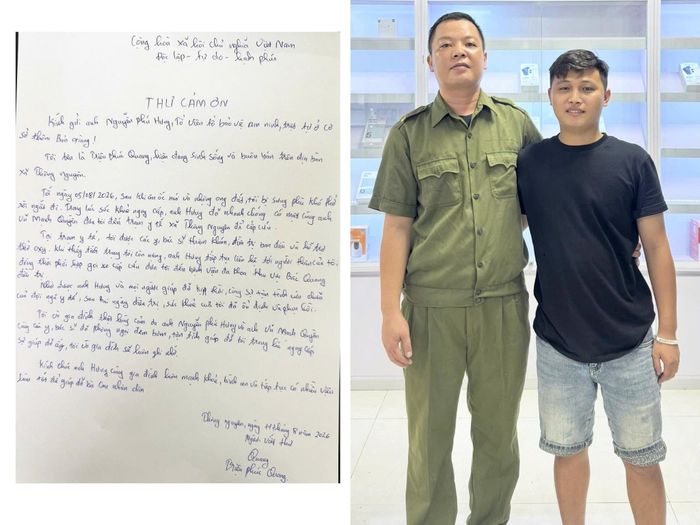 Cộng hòa xã hội chủ nghĩa Việt Nam
Độc lập - tự do - hạnh phúc
THƯ CẢM ƠN
Kính gửi: anh Nguyễn Phú Hưng, Tổ viên tổ bảo vệ an ninh, trật tự ở cơ
sở thôm Bản Giàng!
Tôi tên là Triệu Phúc Quang, hiện đang sinh sống và buôn bán trên địa bàn
xã Thông Nguyên.
Tối ngày 05/08/2026, sau khi ăn ốc mò và nhộng ong đất, tôi bị sưng phù khó thở
và ngất đi. Trong lúc sức khỏe nguy cấp, anh Hưng đã nhanh chóng có mặt cùng anh
Vũ Mạnh Quyền đưa tôi đến trạm y tế xã Thông Nguyên để cấp cứu.
Tại trạm y tế, tôi được các y, bác sĩ thăm khám, điều trị ban đầu và hỗ trợ
thở oxy. Khi thấy tình trạng tôi còn nặng, anh Hưng tiếp tục liên hệ tới người thân của tôi,
đồng thời phối hợp gọi xe cấp cứu đưa tôi đến bệnh viện đa khoa khu vực Bắc Quang
điều trị.
Nhờ được anh Hưng và mọi người giúp đỡ kịp thời, cùng sự tận tình cứu chữa
của đội ngũ y tế, sau hai ngày điều trị, sức khỏe của tôi đã ổn định và phục hồi.
Tôi và gia đình thật lòng cảm ơn anh Nguyễn Phú Hưng và anh Vũ Mạnh Quyền
cùng các y, bác sĩ đã không ngại đêm hôm, tận tình giúp đỡ tôi trong lúc nguy cấp
Sự giúp đỡ ấy, tôi và gia đình sẽ luôn ghi nhớ.
Kính chúc anh Hưng cùng gia đình luôn mạnh khỏe, bình an và tiếp tục có nhiều việc
làm tốt để giúp đỡ bà con nhân dân
Thông Nguyên, ngày 11 tháng 8 năm 2026
Người viết thư
Quang
Triệu Phúc Quang.